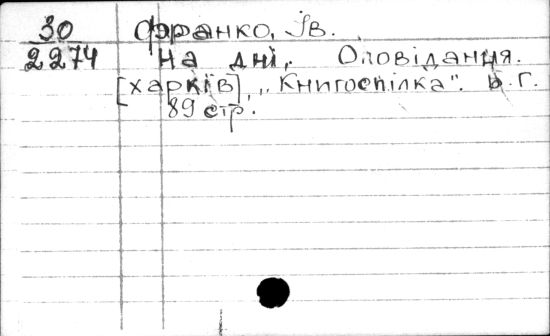 30 Франко, Ів.
2274 На дні. Оповідання.
[Харків], „Книгоспілка". Б.Г.
89 стр.